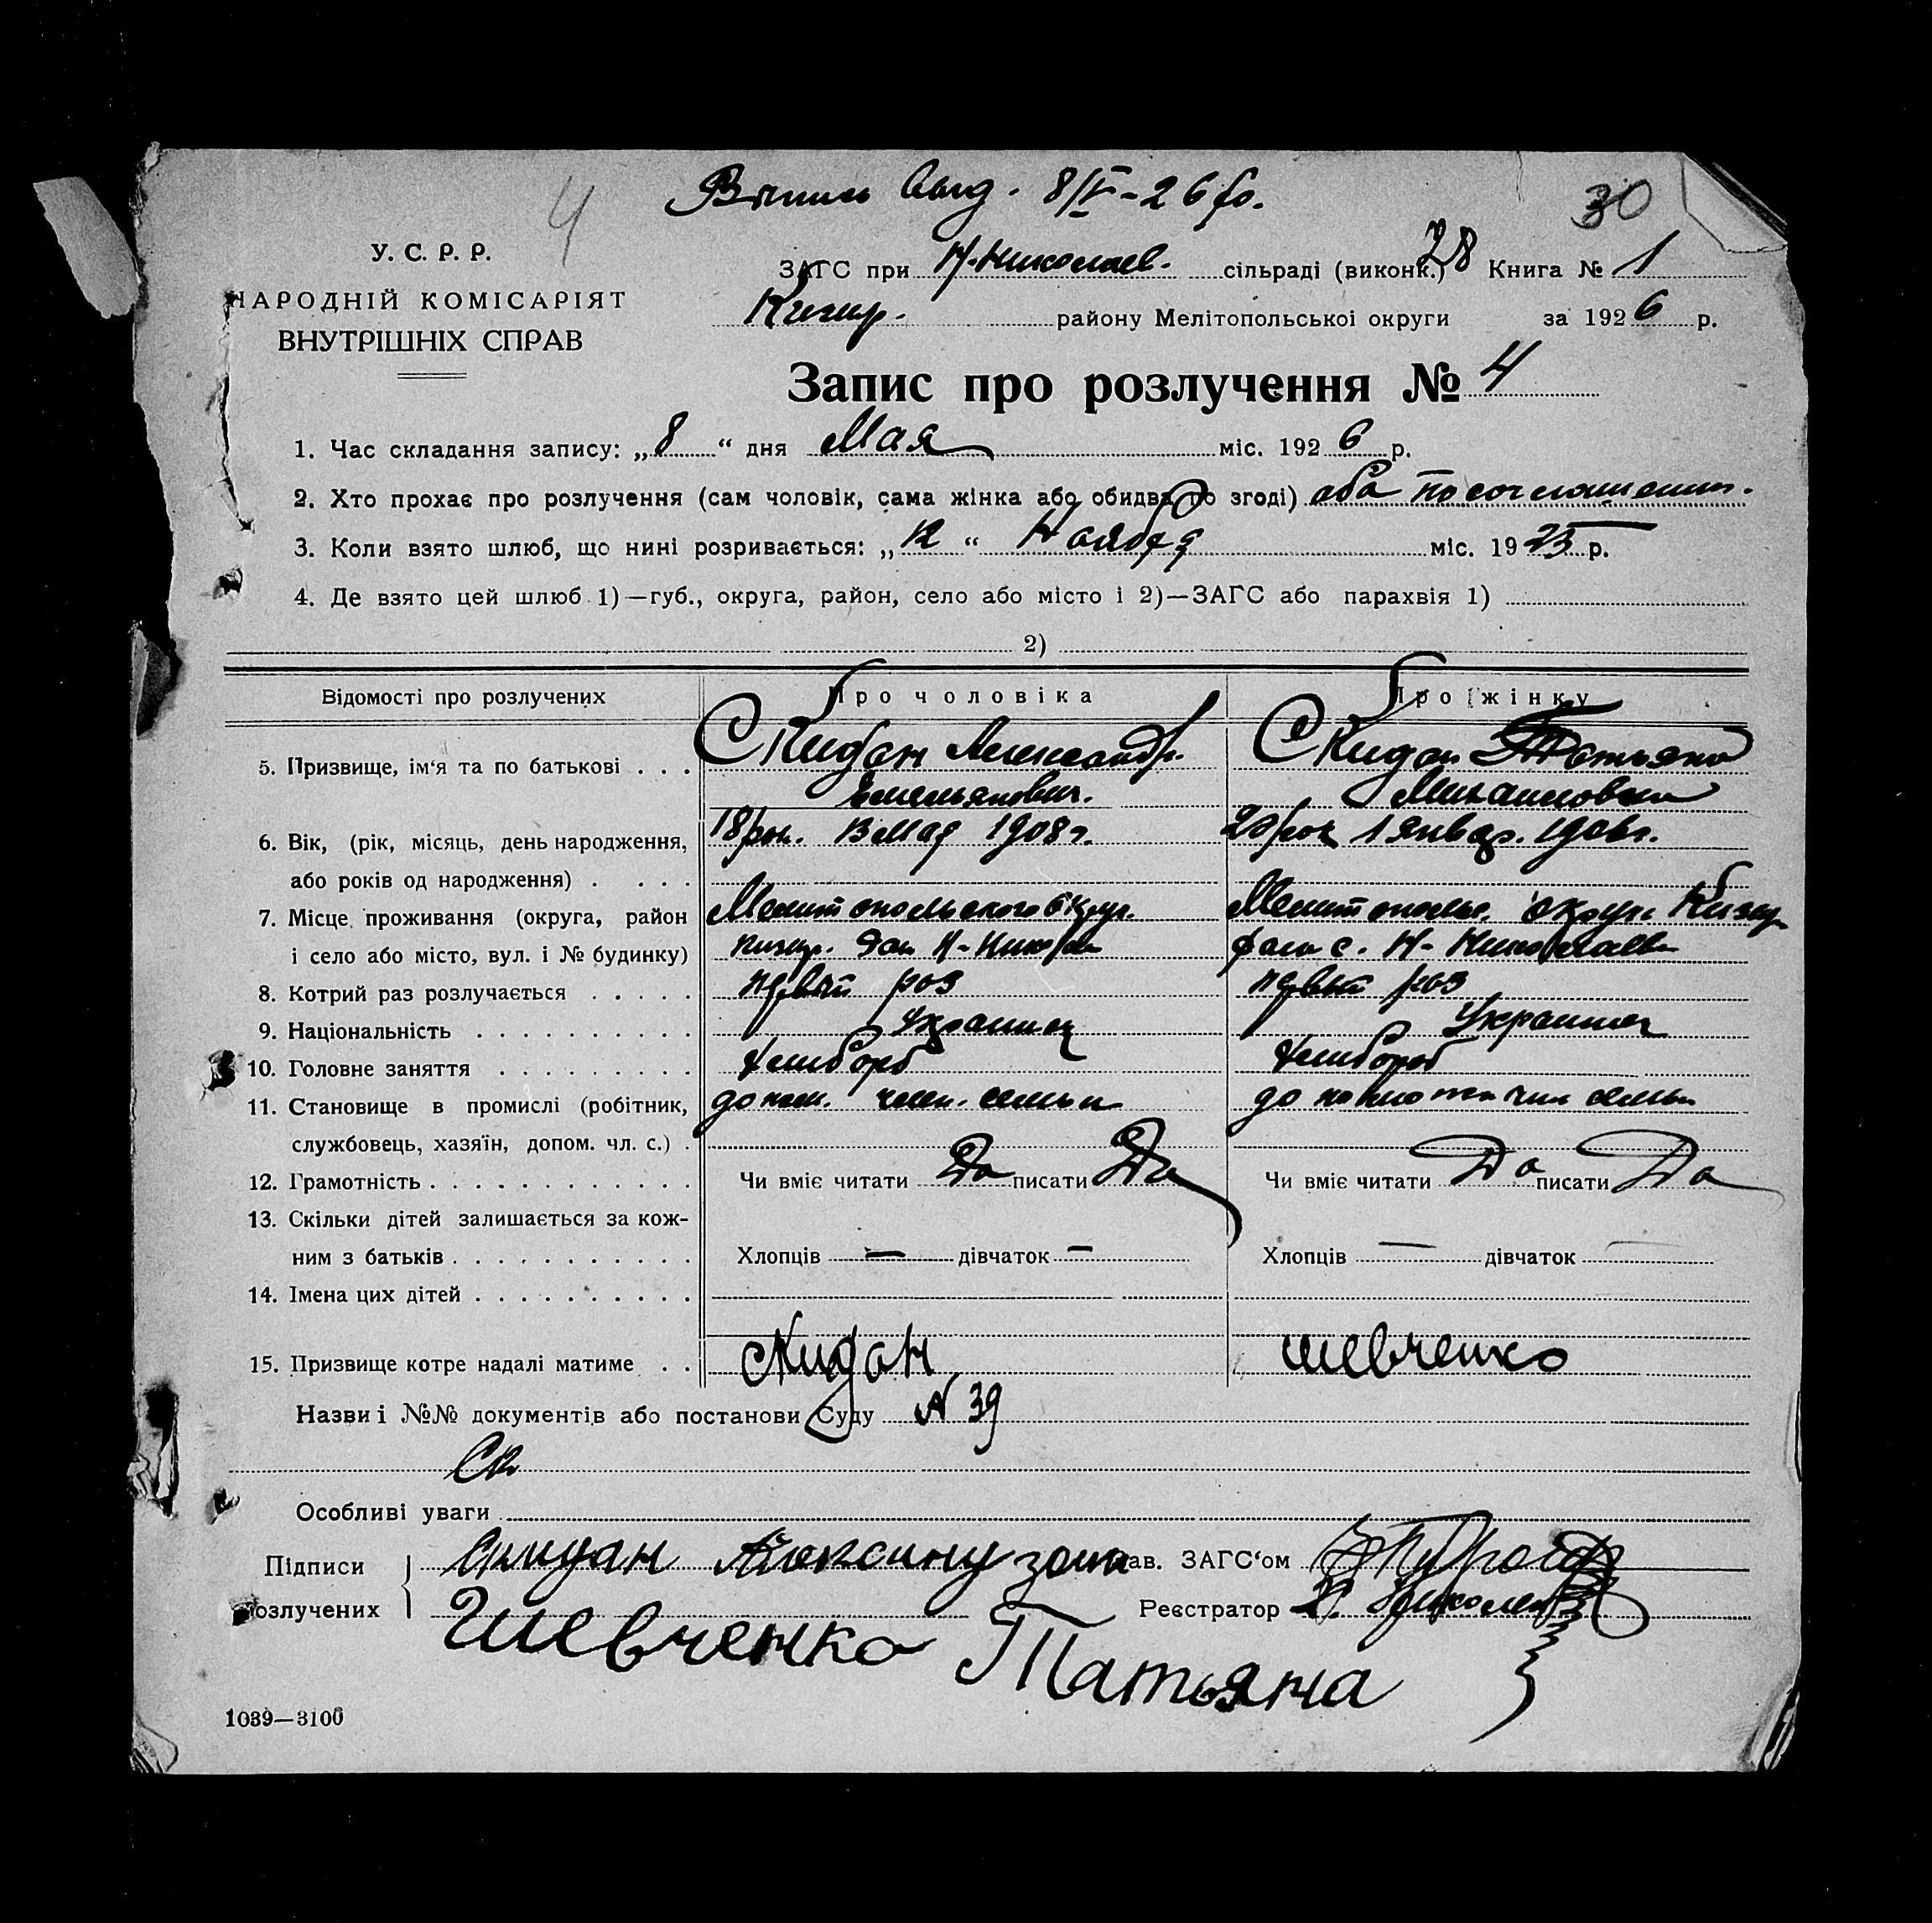 4
выд. 8/V-26 го.
30
У. С. Р. Р.
НАРОДНІЙ КОМІСАРІЯТ
ВНУТРІШНІХ СПРАВ
ЗАГС при Н-Николаев. сільраді (виконк.) 28 Книга № 1
району Мелітопольської округи за 1926 р.
Запис про розлучення № 4
1. Час складання запису: „8“ дня Мая міс. 1926 р.
2. Хто прохає про розлучення (сам чоловік, сама жінка або обидва по згоді) оба по соглашению.
3. Коли взято шлюб, що нині розривається: „12“ Ноября міс. 1925 р.
4. Де взято цей шлюб 1)—губ., округа, район, село або місто і 2)—ЗАГС або парахвія 1)
2)
Відомості про розлучених Про чоловіка Про жінку
5. Призвище, ім‘я та по батькові . . . Скидан Александр. Скидан Татьяна
Емельянович. Михайловна
6. Вік, (рік, місяць, день народження, 18 рок. 13 Мая 1908 г. 20 рок 1 Январ. 1906 г.
або років од народження) . . . .
7. Місце проживання (округа, район Мелитопольского Округ. Мелитопольс. округа Кизир
і село або місто, вул. і № будинку) Кизир. Н-Никол с. Н-Николаевка
8. Котрий раз розлучається . . . . . первый раз первый раз
9. Національність . . . . . . . . . Украинец Украинка
10. Головне заняття . . . . . . . . . хлибороб хлибороб
11. Становище в промислі (робітник, допом. член. семьи член семьи
службовець, хазяїн, допом. чл. с.) .
12. Грамотність . . . . . . . . . . . . Чи вміє читати Да писати Да Чи вміє читати Да писати Да
13. Скільки дітей залишається за кож-
ним з батьків . . . . . . . . . . . Хлопців — дівчаток — Хлопців — дівчаток —
14. Імена цих дітей . . . . . . . . . .
15. Призвище котре надалі матиме . . Скидан Шевченко
Назви і №№ документів або постанови Суду N 39
Ск
Особливі уваги
Підписи Скидан Зав. ЗАГС‘ом
розлучених Реєстратор
Шевченко Татьяна
1039—3100